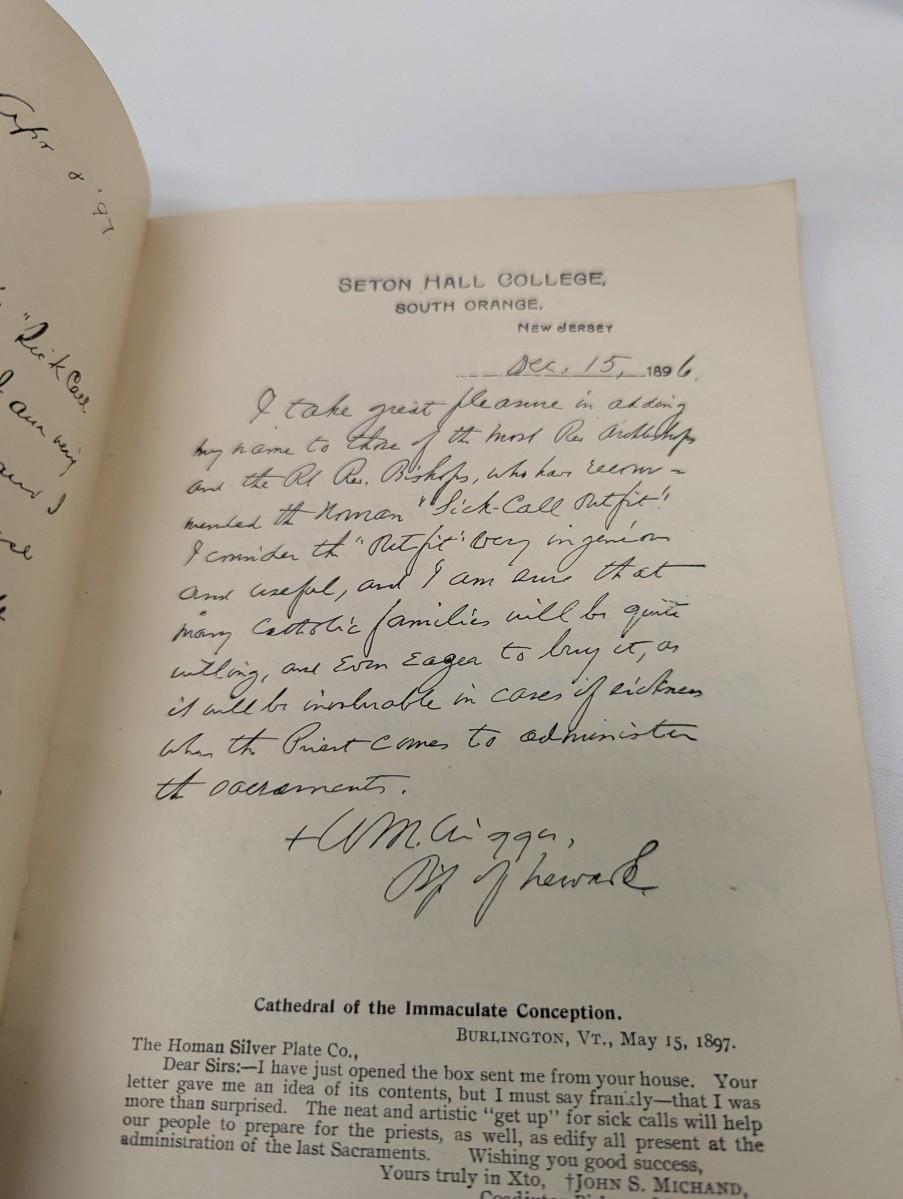 Apr 8 '97
"Sick Call
I am very
and I
SETON HALL COLLEGE,
SOUTH ORANGE,
NEW JERSEY
Dec. 15, 1896.
I take great pleasure in adding
my name to those of th Most Rev Archbishops
and the Rt Rev. Bishops, who have recom=
mended th Homan "Sick-Call Outfit".
I consider th "Outfit" very ingenious
and useful, and I am sure that
many Catholic families will be quite
willing, and even eager to buy it, as
it will be invaluable in cases of sickness
when th Priest comes to administer
th sacraments.
+ W M. Wigger,
Bp of Newark
Cathedral of the Immaculate Conception.
BURLINGTON, VT., May 15, 1897.
The Homan Silver Plate Co.,
Dear Sirs:—I have just opened the box sent me from your house. Your
letter gave me an idea of its contents, but I must say frankly—that I was
more than surprised. The neat and artistic "get up" for sick calls will help
our people to prepare for the priests, as well, as edify all present at the
administration of the last Sacraments. Wishing you good success,
Yours truly in Xto, †JOHN S. MICHAND,